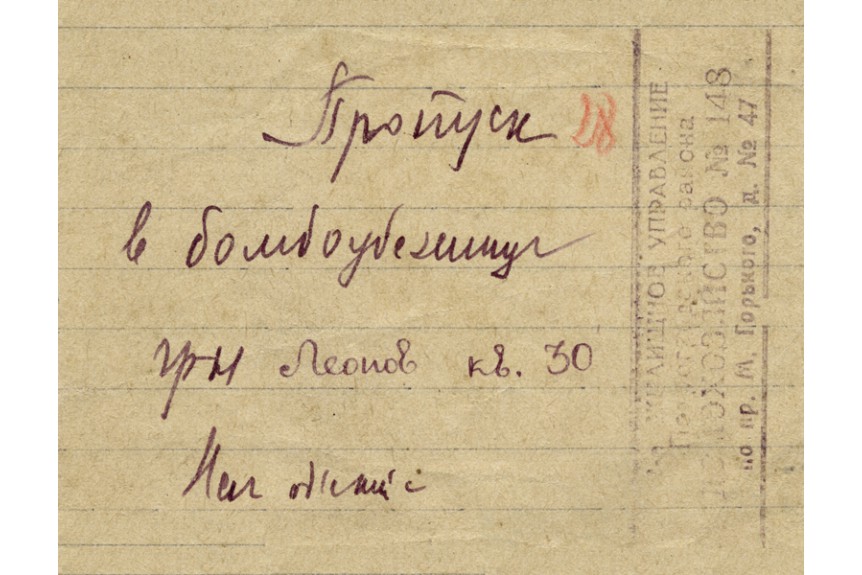 Пропуск 28
в бомбоубежище
гр-н Леонов кв. 30
ЖИЛИЩНОЕ УПРАВЛЕНИЕ
района
ДОМОХОЗЯЙСТВО № 148
по пр. М. Горького, д. № 47